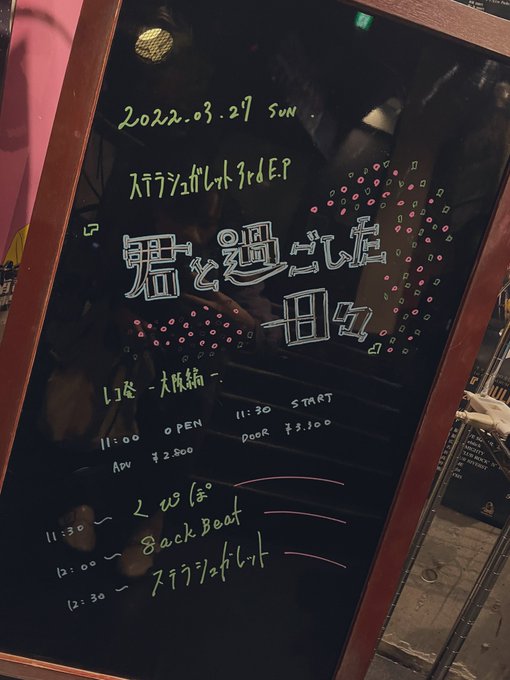 2022.03.27 SUN.
ステラシュガレット 3rd E.P
君と過ごした
日々
レコ発 -大阪編-
11:00 OPEN 11:30 START
ADV ¥2.800 DOOR ¥3.300
11:30 〜 くぴぽ
12:00 〜 8ackBeat
12:30 〜 ステラシュガレット